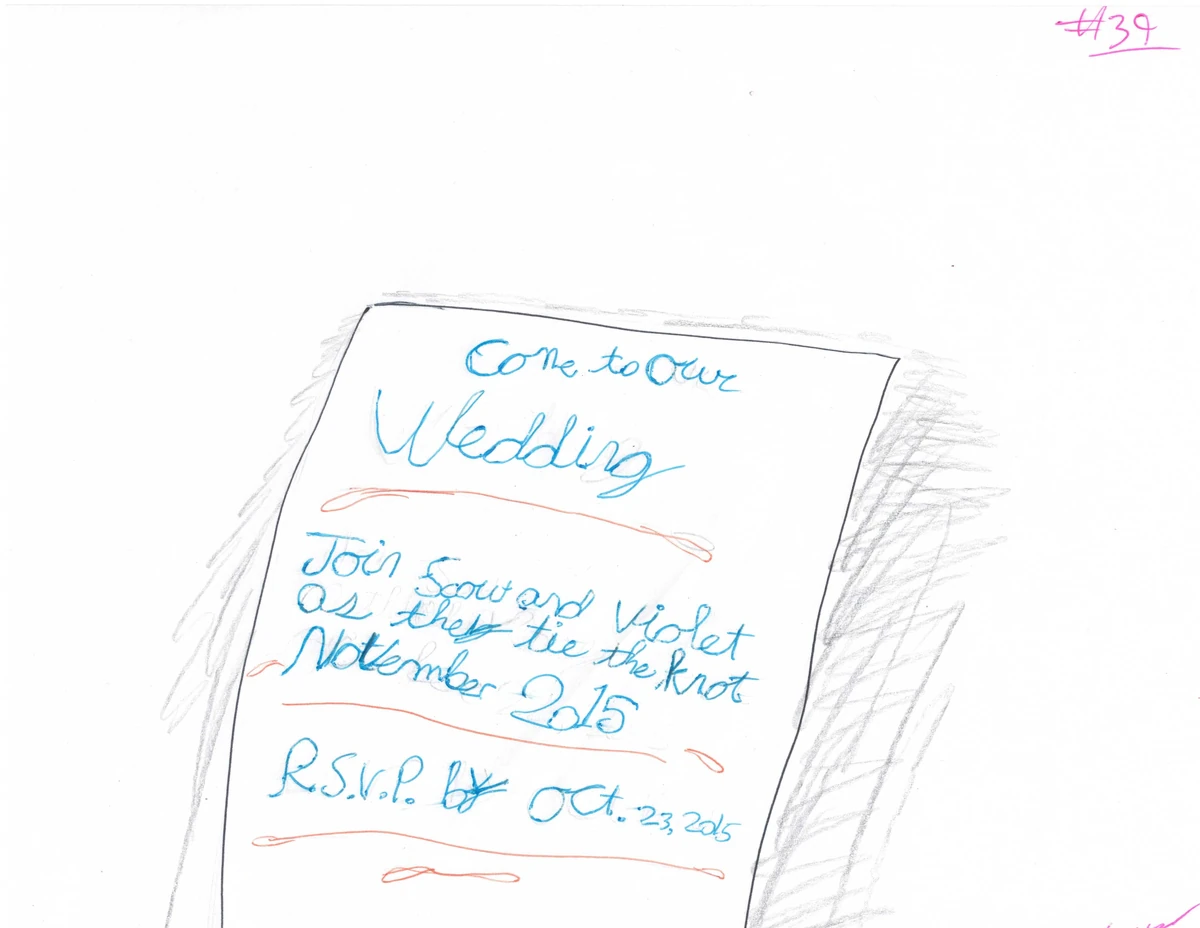 #39
Come to Our
Wedding
Join Scout and Violet
as they tie the knot
November 2015
R.S.V.P. by Oct. 23, 2015